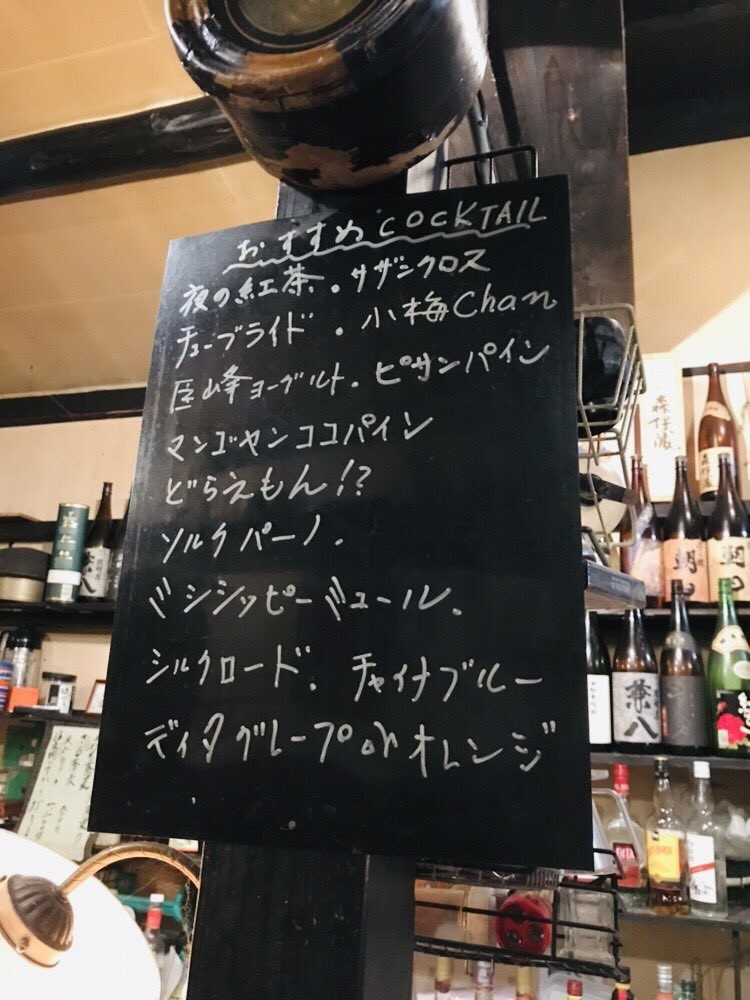 おすすめ COCKTAIL
夜の紅茶。サザンクロス
チューブライド。小梅Chan
巨峰ヨーグルト。ピサンパイン
マンゴヤンココパイン
どらえもん!?
ソルクバーノ。
ミシシッピーミュール。
シルクロード。チャイナブルー
ディタグレープorオレンジ
森伊蔵
朝日
朝日
兼八